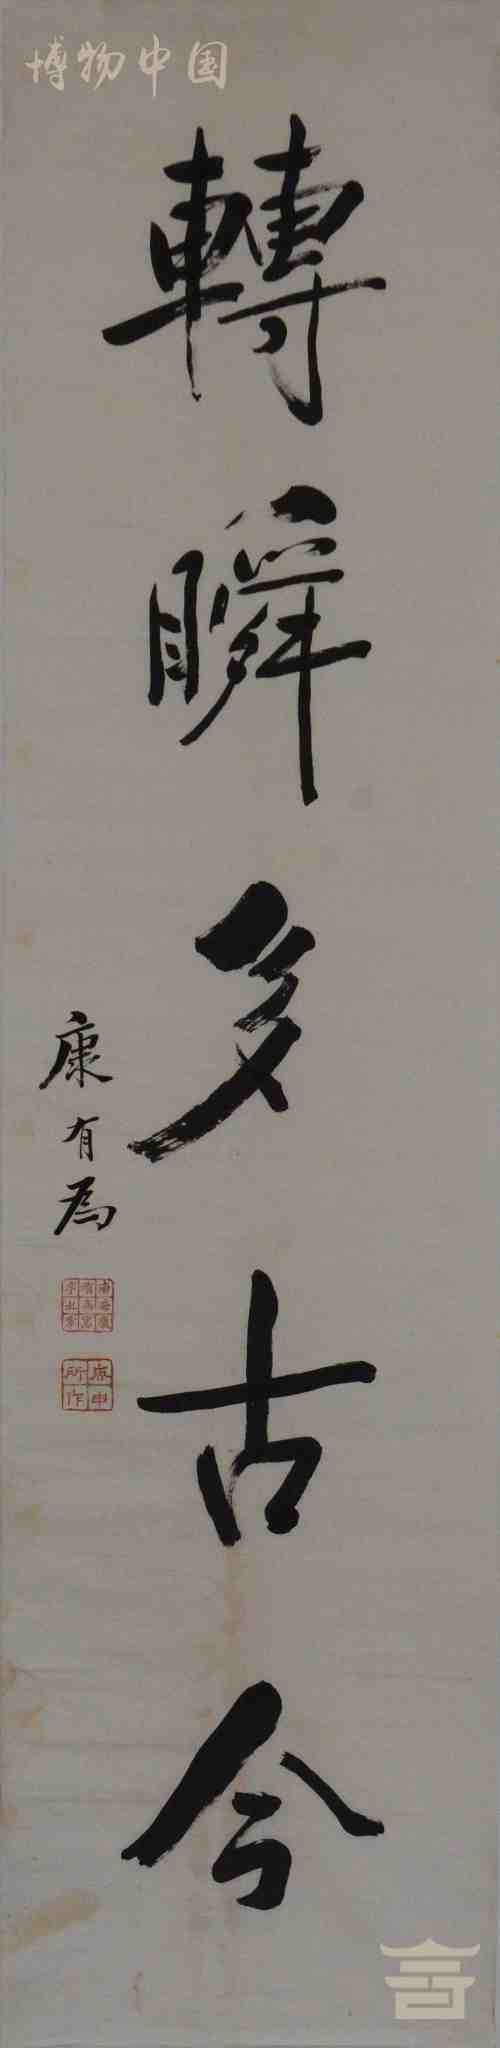 博物中国
轉瞬多古今
康有為
庚申所作